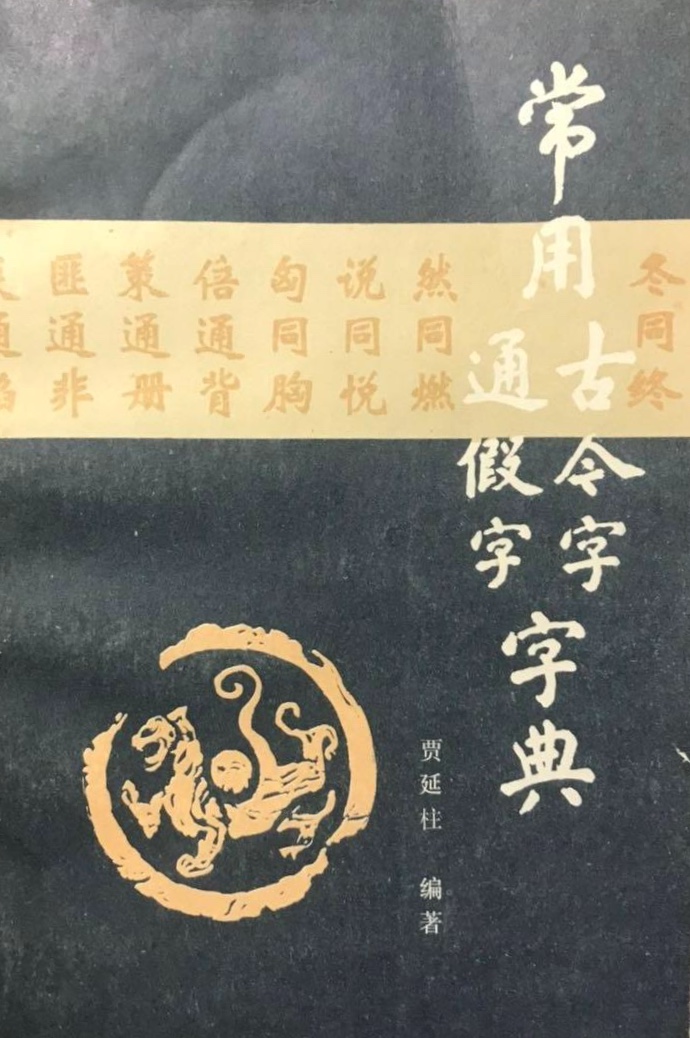 常用古今字通假字字典
冬同终
然同燃
说同悦
匈同胸
倍通背
策通册
匪通非
贾延柱 编著